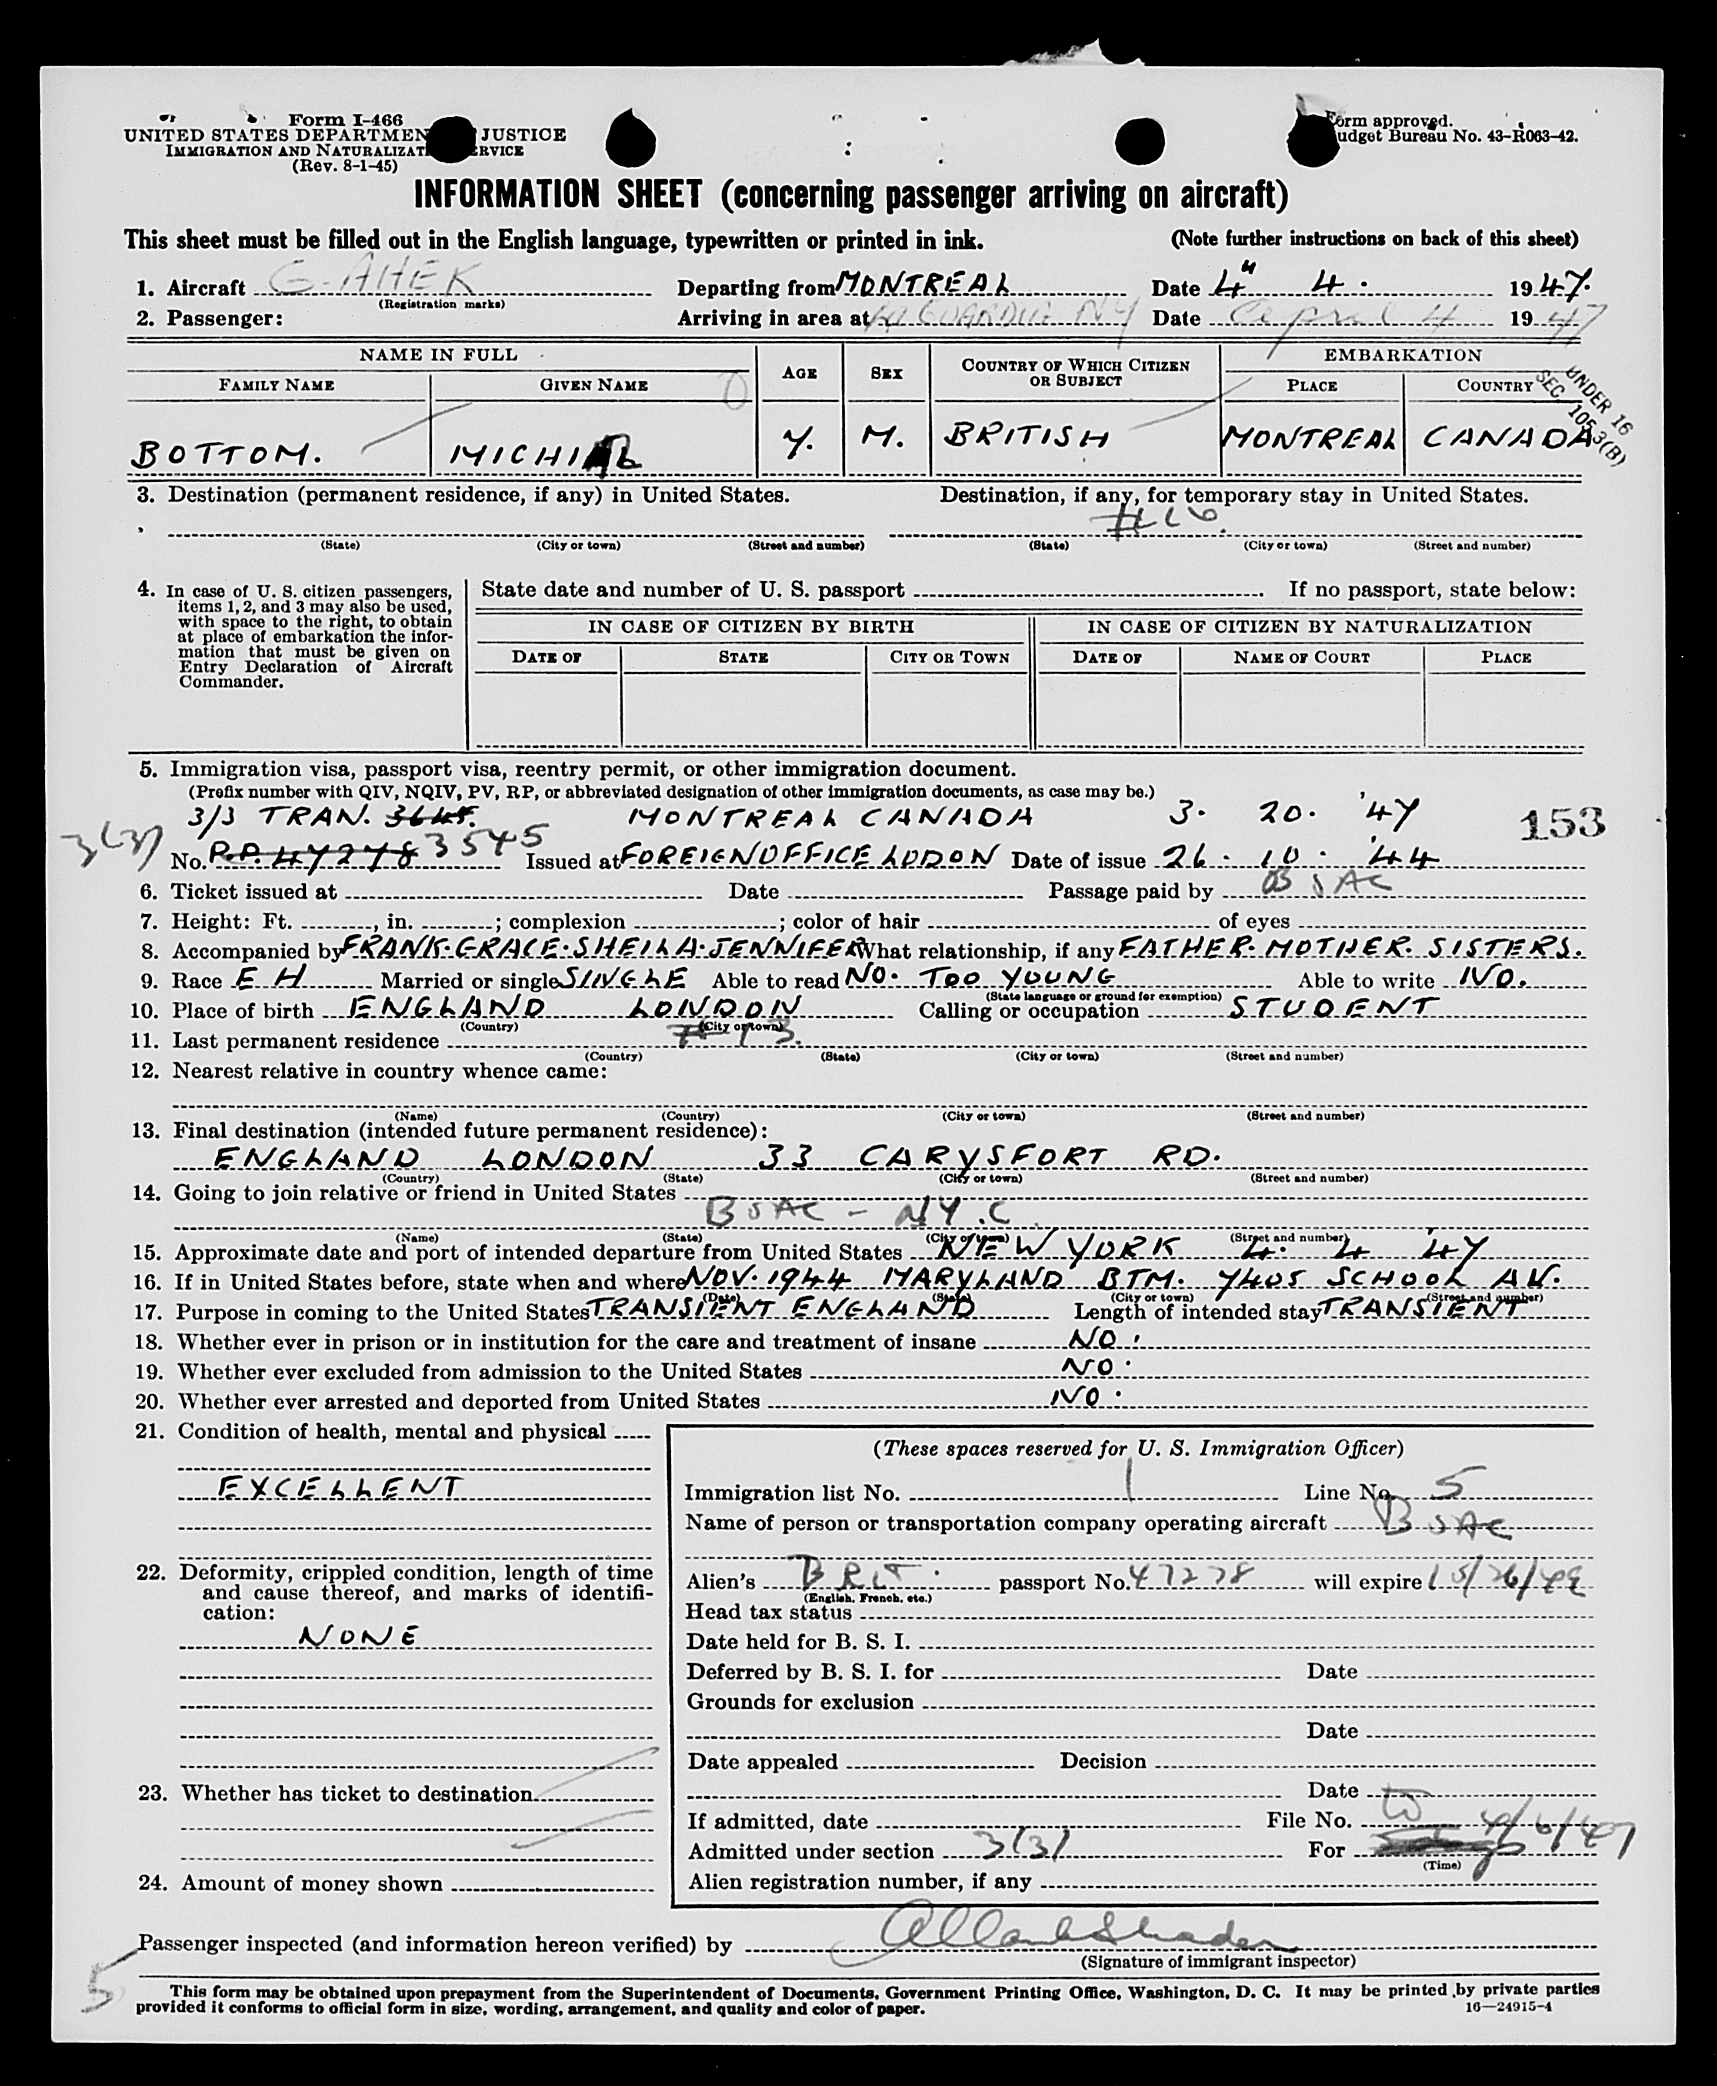 Form I-466
UNITED STATES DEPARTMEN JUSTICE
IMMIGRATION AND NATURALIZAT RVICE
(Rev. 8-1-45)
Form approved.
udget Bureau No. 43-R063-42.
INFORMATION SHEET (concerning passenger arriving on aircraft)
This sheet must be filled out in the English language, typewritten or printed in ink. (Note further instructions on back of this sheet)
1. Aircraft G-AHEK Departing from MONTREAL Date 4" 4. 1947.
(Registration marks)
2. Passenger: Arriving in area at LA GUARDIA NY Date April 4 1947
NAME IN FULL AGE SEX COUNTRY OF WHICH CITIZEN OR SUBJECT EMBARKATION
FAMILY NAME GIVEN NAME PLACE COUNTRY
UNDER 16
SEC 105.3(B)
BOTTOM. 7. M. BRITISH MONTREAL CANADA
3. Destination (permanent residence, if any) in United States. Destination, if any, for temporary stay in United States.
(State) (City or town) (Street and number) (State) (City or town) (Street and number)
4. In case of U. S. citizen passengers, items 1, 2, and 3 may also be used, with space to the right, to obtain at place of embarkation the information that must be given on Entry Declaration of Aircraft Commander.
State date and number of U. S. passport If no passport, state below:
IN CASE OF CITIZEN BY BIRTH IN CASE OF CITIZEN BY NATURALIZATION
DATE OF STATE CITY OR TOWN DATE OF NAME OF COURT PLACE
5. Immigration visa, passport visa, reentry permit, or other immigration document.
(Prefix number with QIV, NQIV, PV, RP, or abbreviated designation of other immigration documents, as case may be.)
3/3 TRAN. MONTREAL CANADA 3. 20. '47 153
3(3) No. P.P. 47278 3545 Issued at FOREIGN OFFICE LODON Date of issue 26. 10. '44
6. Ticket issued at Date Passage paid by BSAC
7. Height: Ft. , in. ; complexion ; color of hair of eyes
8. Accompanied by FRANK. GRACE. SHEILA. JENNIFER What relationship, if any FATHER. MOTHER. SISTERS.
9. Race E H Married or single SINGLE Able to read NO. TOO YOUNG Able to write NO.
(State language or ground for exemption)
10. Place of birth ENGLAND LONDON Calling or occupation STUDENT
(Country) (City or town)
11. Last permanent residence # 13.
(Country) (State) (City or town) (Street and number)
12. Nearest relative in country whence came:
(Name) (Country) (City or town) (Street and number)
13. Final destination (intended future permanent residence):
ENGLAND LONDON 33 CARYSFORT RD.
(Country) (State) (City or town) (Street and number)
14. Going to join relative or friend in United States
BSAC - NY.C
(Name) (State) (City or town) (Street and number)
15. Approximate date and port of intended departure from United States NEW YORK 4. 4 '47
16. If in United States before, state when and where NOV. 1944 MARYLAND BTM. 7405 SCHOOL AV.
(Date) (State) (City or town) (Street and number)
17. Purpose in coming to the United States TRANSIENT ENGLAND Length of intended stay TRANSIENT
18. Whether ever in prison or in institution for the care and treatment of insane NO.
19. Whether ever excluded from admission to the United States NO.
20. Whether ever arrested and deported from United States NO.
21. Condition of health, mental and physical
EXCELLENT
22. Deformity, crippled condition, length of time and cause thereof, and marks of identification:
NONE
23. Whether has ticket to destination
24. Amount of money shown
(These spaces reserved for U. S. Immigration Officer)
Immigration list No. 1 Line No. 5
Name of person or transportation company operating aircraft BSAC
Alien's BRIT. passport No. 47278 will expire
(English, French, etc.)
Head tax status
Date held for B. S. I.
Deferred by B. S. I. for Date
Grounds for exclusion
Date
Date appealed Decision
Date
If admitted, date File No.
Admitted under section 3(3) For 4/6/47
(Time)
Alien registration number, if any
Passenger inspected (and information hereon verified) by
(Signature of immigrant inspector)
5
This form may be obtained upon prepayment from the Superintendent of Documents, Government Printing Office, Washington, D. C. It may be printed by private parties
provided it conforms to official form in size, wording, arrangement, and quality and color of paper. 16—24915-4